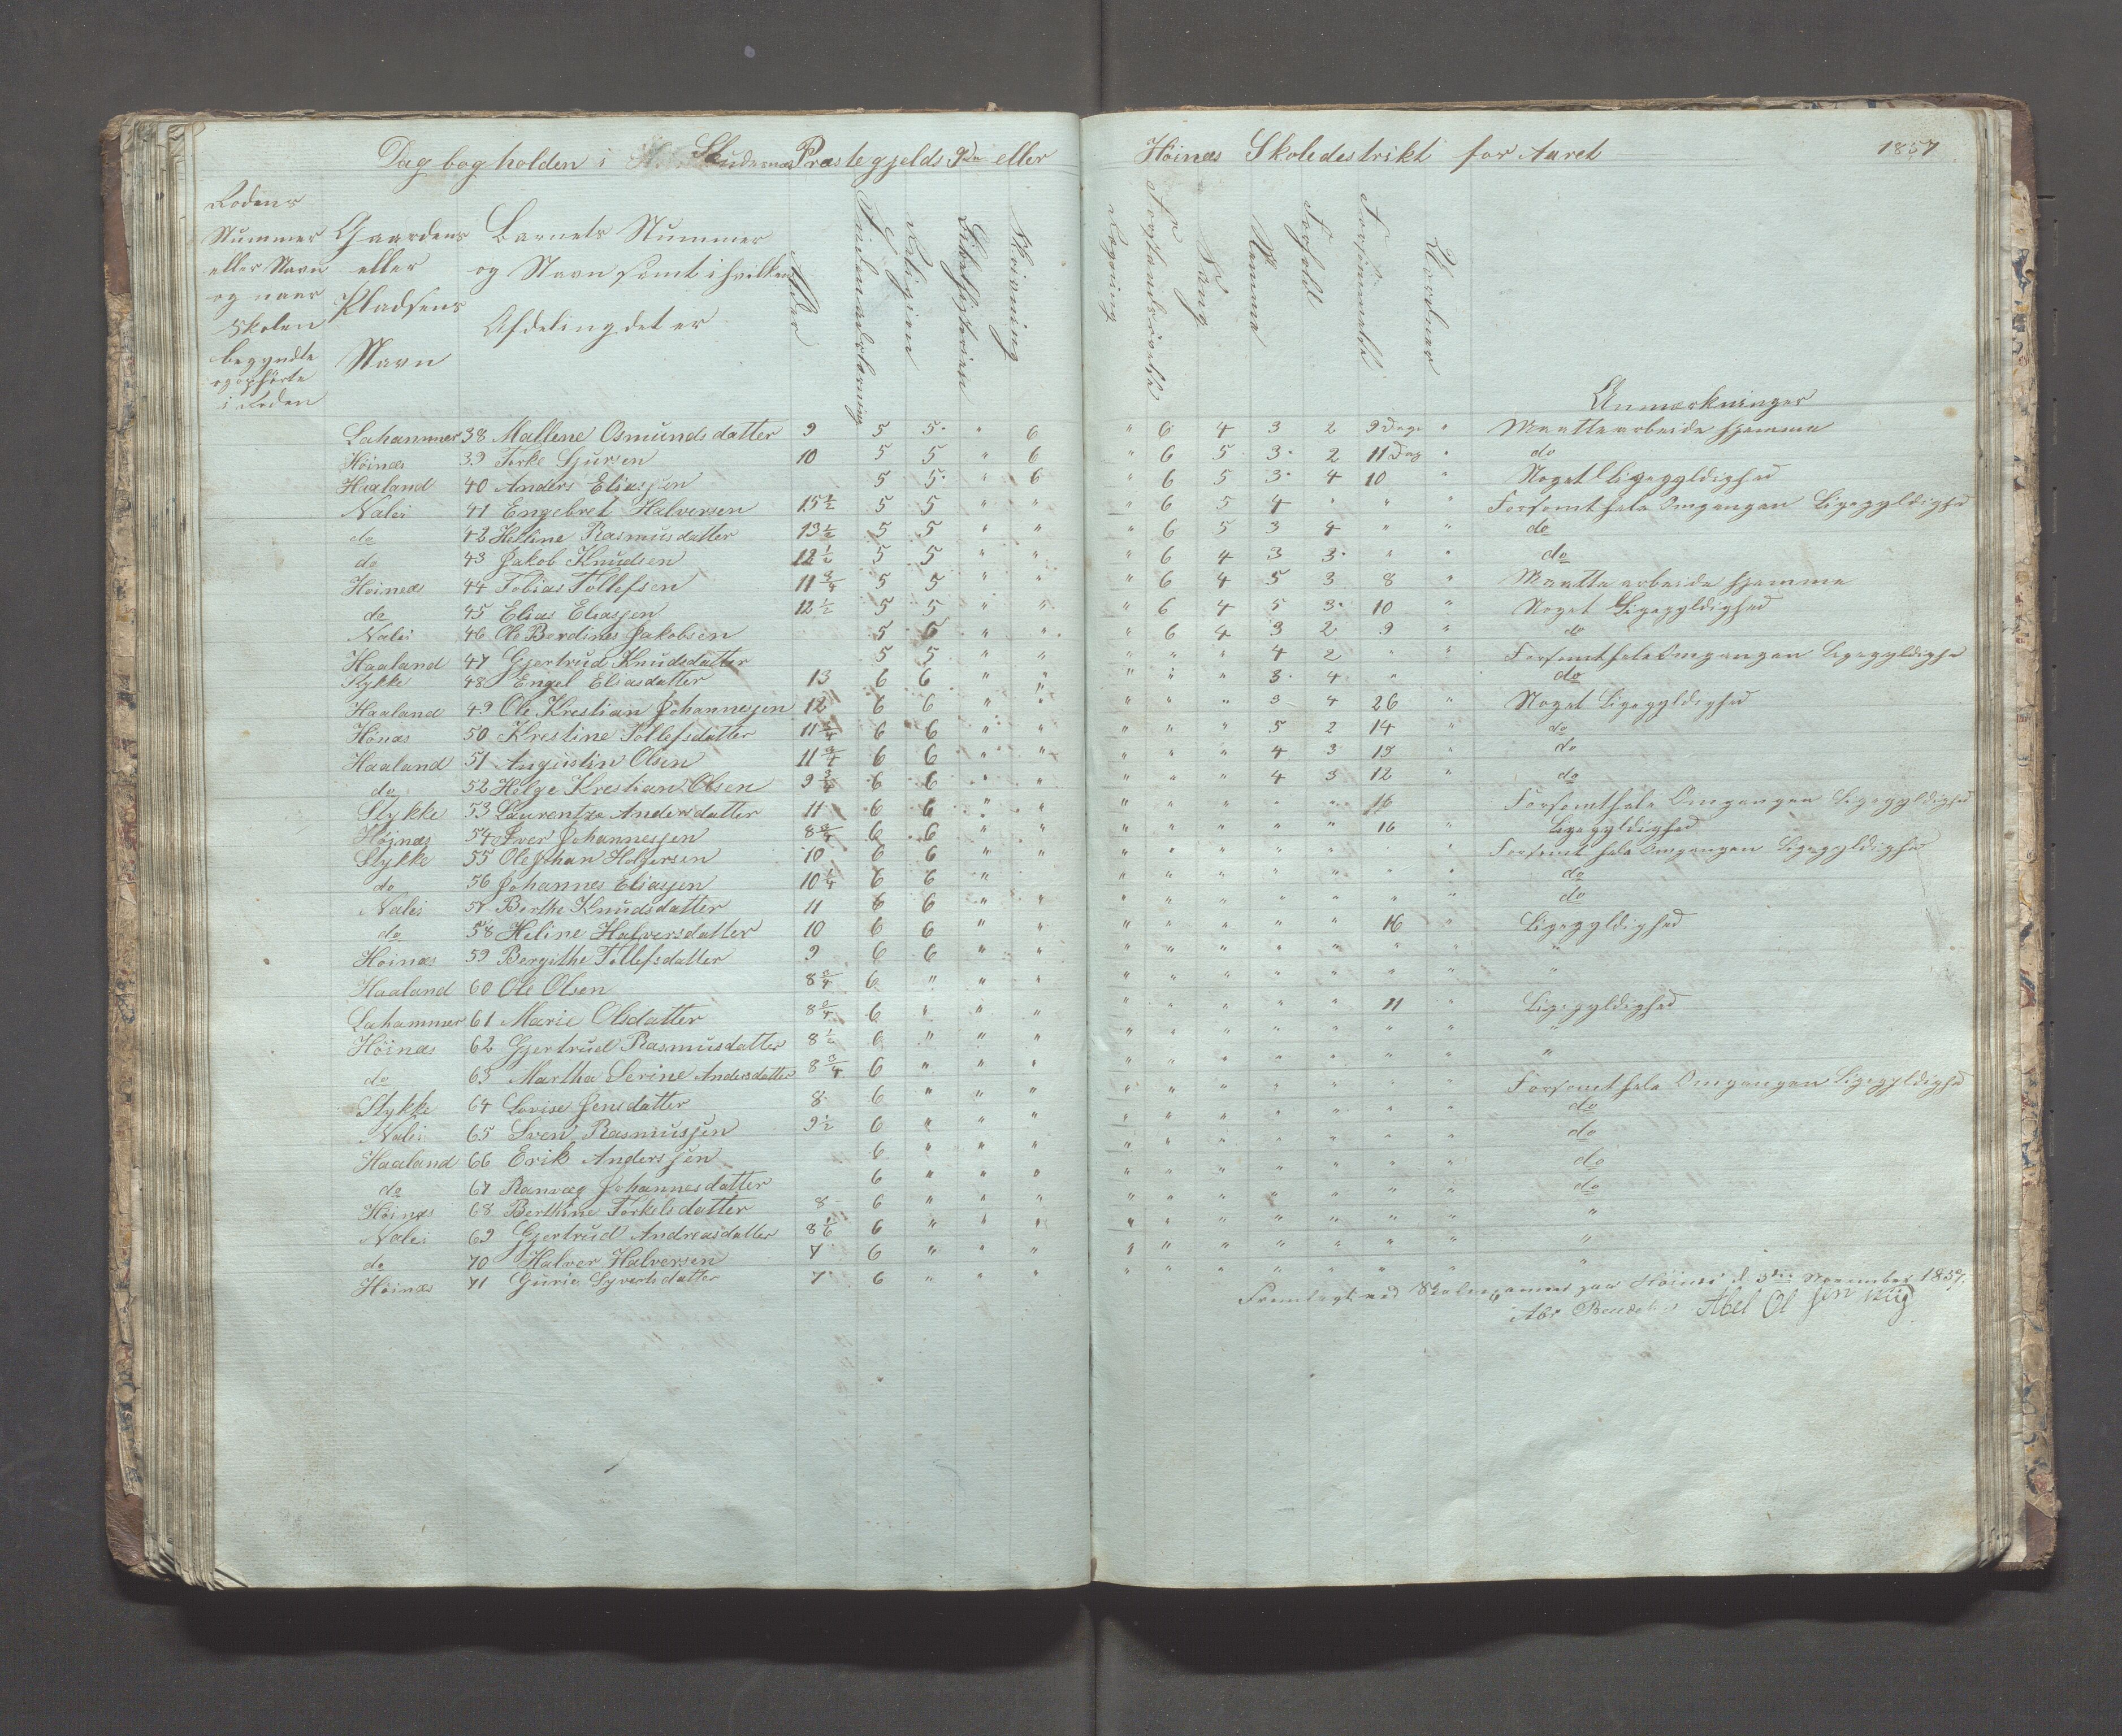 Dagbog holden i Skudernæs Præstegjelds 9de eller Höinæs Skoledestrikt for Aaret 1857
Rodens Nummer eller Navn og naar Skolen begyndte og ophörte i Roden
Gaardens eller Pladsens Navn
Barnets Nummer og Navn samt i hvilken Afdeling det er
Alder
Indenadslæsning
Religion
Bibelhistorien
Skrivning
Regning
Forstandsøvelse
Sang
Nemme
Forhold
Forsömmelse
Anmærkninger
Lahammer 38 Mallene Osmundsdatter 9 5 5 " 6 " 6 4 3 2 9 Dage " Maatte arbeide hjemme
Höinæs 39 Torke Sjursen 10 5 5 " 6 " 6 5 3 2 11 Dag " do
Haaland 40 Anders Eliassen 5 5 " 6 " 6 5 3 4 10 " Noget Ligegyldighed
Nalei 41 Engebret Halversen 15½ 5 5 " " " 6 5 4 " " " Forsomt hele Omgangen Ligegyldighed
do 42 Helline Rasmusdatter 13½ 5 5 " " " 6 5 3 4 " " do
do 43 Jakob Knudsen 12½ 5 5 " " " 6 4 3 3 " " do
Höinæs 44 Tobias Tollefsen 11¾ 5 5 " " " 6 4 5 3 8 " Maatte arbeide hjemme
do 45 Elias Eliassen 12½ 5 5 " " " 6 4 5 3 10 " Noget Ligegyldighed
Nalei 46 Ole Berdines Jakobsen 5 6 " " " 6 4 3 2 9 " do
Haaland 47 Gjertrud Knudsdatter 5 5 " " " " " 4 2 " " Forsomt hele Omgangen Ligegyldighed
Stykke 48 Engel Eliasdatter 13 6 6 " " " " " 3 4 " do
Haaland 49 Ole Krestian Johannessen 12 6 6 " " " " " 3 4 26 " Noget Ligegyldighed
Hönæs 50 Krestine Tollefsdatter 11¾ 6 6 " " " " " 5 2 14 " do
Haaland 51 Augustin Olsen 11¾ 6 6 " " " " " 4 3 15 " do
do 52 Helge Krestian Olsen 9¾ 6 6 " " " " " 4 3 12 " do
Stykke 53 Laurentze Andersdatter 11 6 6 " " " " " " " 16 Forsomt hele Omgangen Ligegyldighed
Höinæs 54 Iver Johannessen 8¾ 6 6 " " " " " " " 16 " Ligegyldighed
Stykke 55 Ole Johan Helgersen 10 6 6 " " " " " " " " " Forsomt hele Omgangen Ligegyldighed
do 56 Johannes Eliassen 10¼ 6 6 " " " " " " " " do
Nalei 57 Berthe Knudsdatter 11 6 6 " " " " " " " " " do
do 58 Heline Halversdatter 10 6 6 " " " " " " " 16 " Ligegyldighed
Höinæs 59 Bergithe Tollefsdatter 9 6 6 " " " " " " " " " "
Haaland 60 Ole Olsen 8¾ 6 " " " " " " " " " " "
Lahammer 61 Marie Olsdatter 8¾ 6 " " " " " " " " 11 " Ligegyldighed
Höinæs 62 Gjertrud Rasmusdatter 8½ 6 " " " " " " " " " " "
do 63 Martha Serine Andersdatter 8¾ 6 " " " " " " " " " " "
Stykke 64 Lovise Jensdatter 8 6 " " " " " " " " " " Forsomt hele Omgangen Ligegyldighed
Nalei 65 Sven Rasmussen 9½ 6 " " " " " " " " " " do
Haaland 66 Erik Anderssen 6 " " " " " " " " " " do
do 67 Ranveg Johannesdatter 6 " " " " " " " " " " do
Höinæs 68 Berthine Torkelsdatter 8 6 " " " " " " " " " " do
Nalei 69 Gjertrud Andreasdatter 8⅙ 6 " " " " " " " " " " "
do 70 Halver Halversen 7 6 " " " " " " " " " " "
Höinæs 71 Gurie Syvertsdatter 7 6 " " " " " " " " " " "
Fremlagt ved Skoleexamen paa Höinæs d. 5te November 1857.
Abel Ol sen